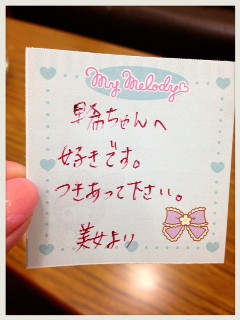 My Melody
早希ちゃんへ
好きです。
つきあって下さい。
美女より